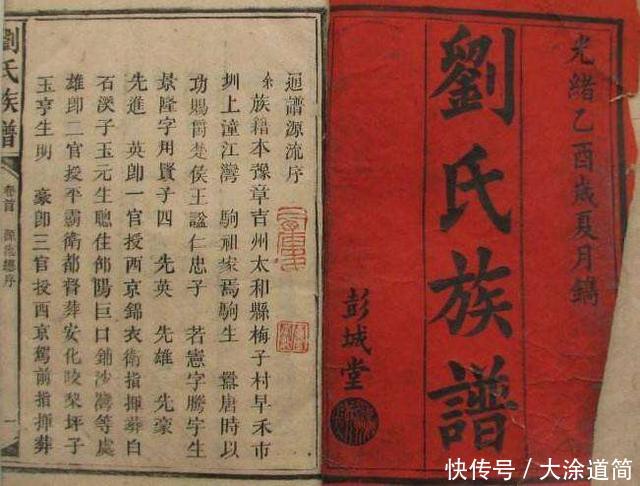 光緒乙酉歲夏月鐫
劉氏族譜
彭城堂
通譜源流序
余族籍本豫章吉州太和縣梅子村早禾市
圳上潼江灣　駒祖家焉駒生　囂唐時以
功賜爵楚侯王諡仁忠子　若憲字騰宇生
景隆字用賢子四　先英　先雄　先豪
先進　英卽一官授西京錦衣衛指揮葬白
石漢子玉元生聰住邵陽巨口鋪沙灣等處
雄卽二官授平霸衛都督葬安化咬梨坪子
玉亨生明　豪卽三官授西京駕前指揮葬
劉氏族譜
卷首
源流總序
一
快传号／大涂道简